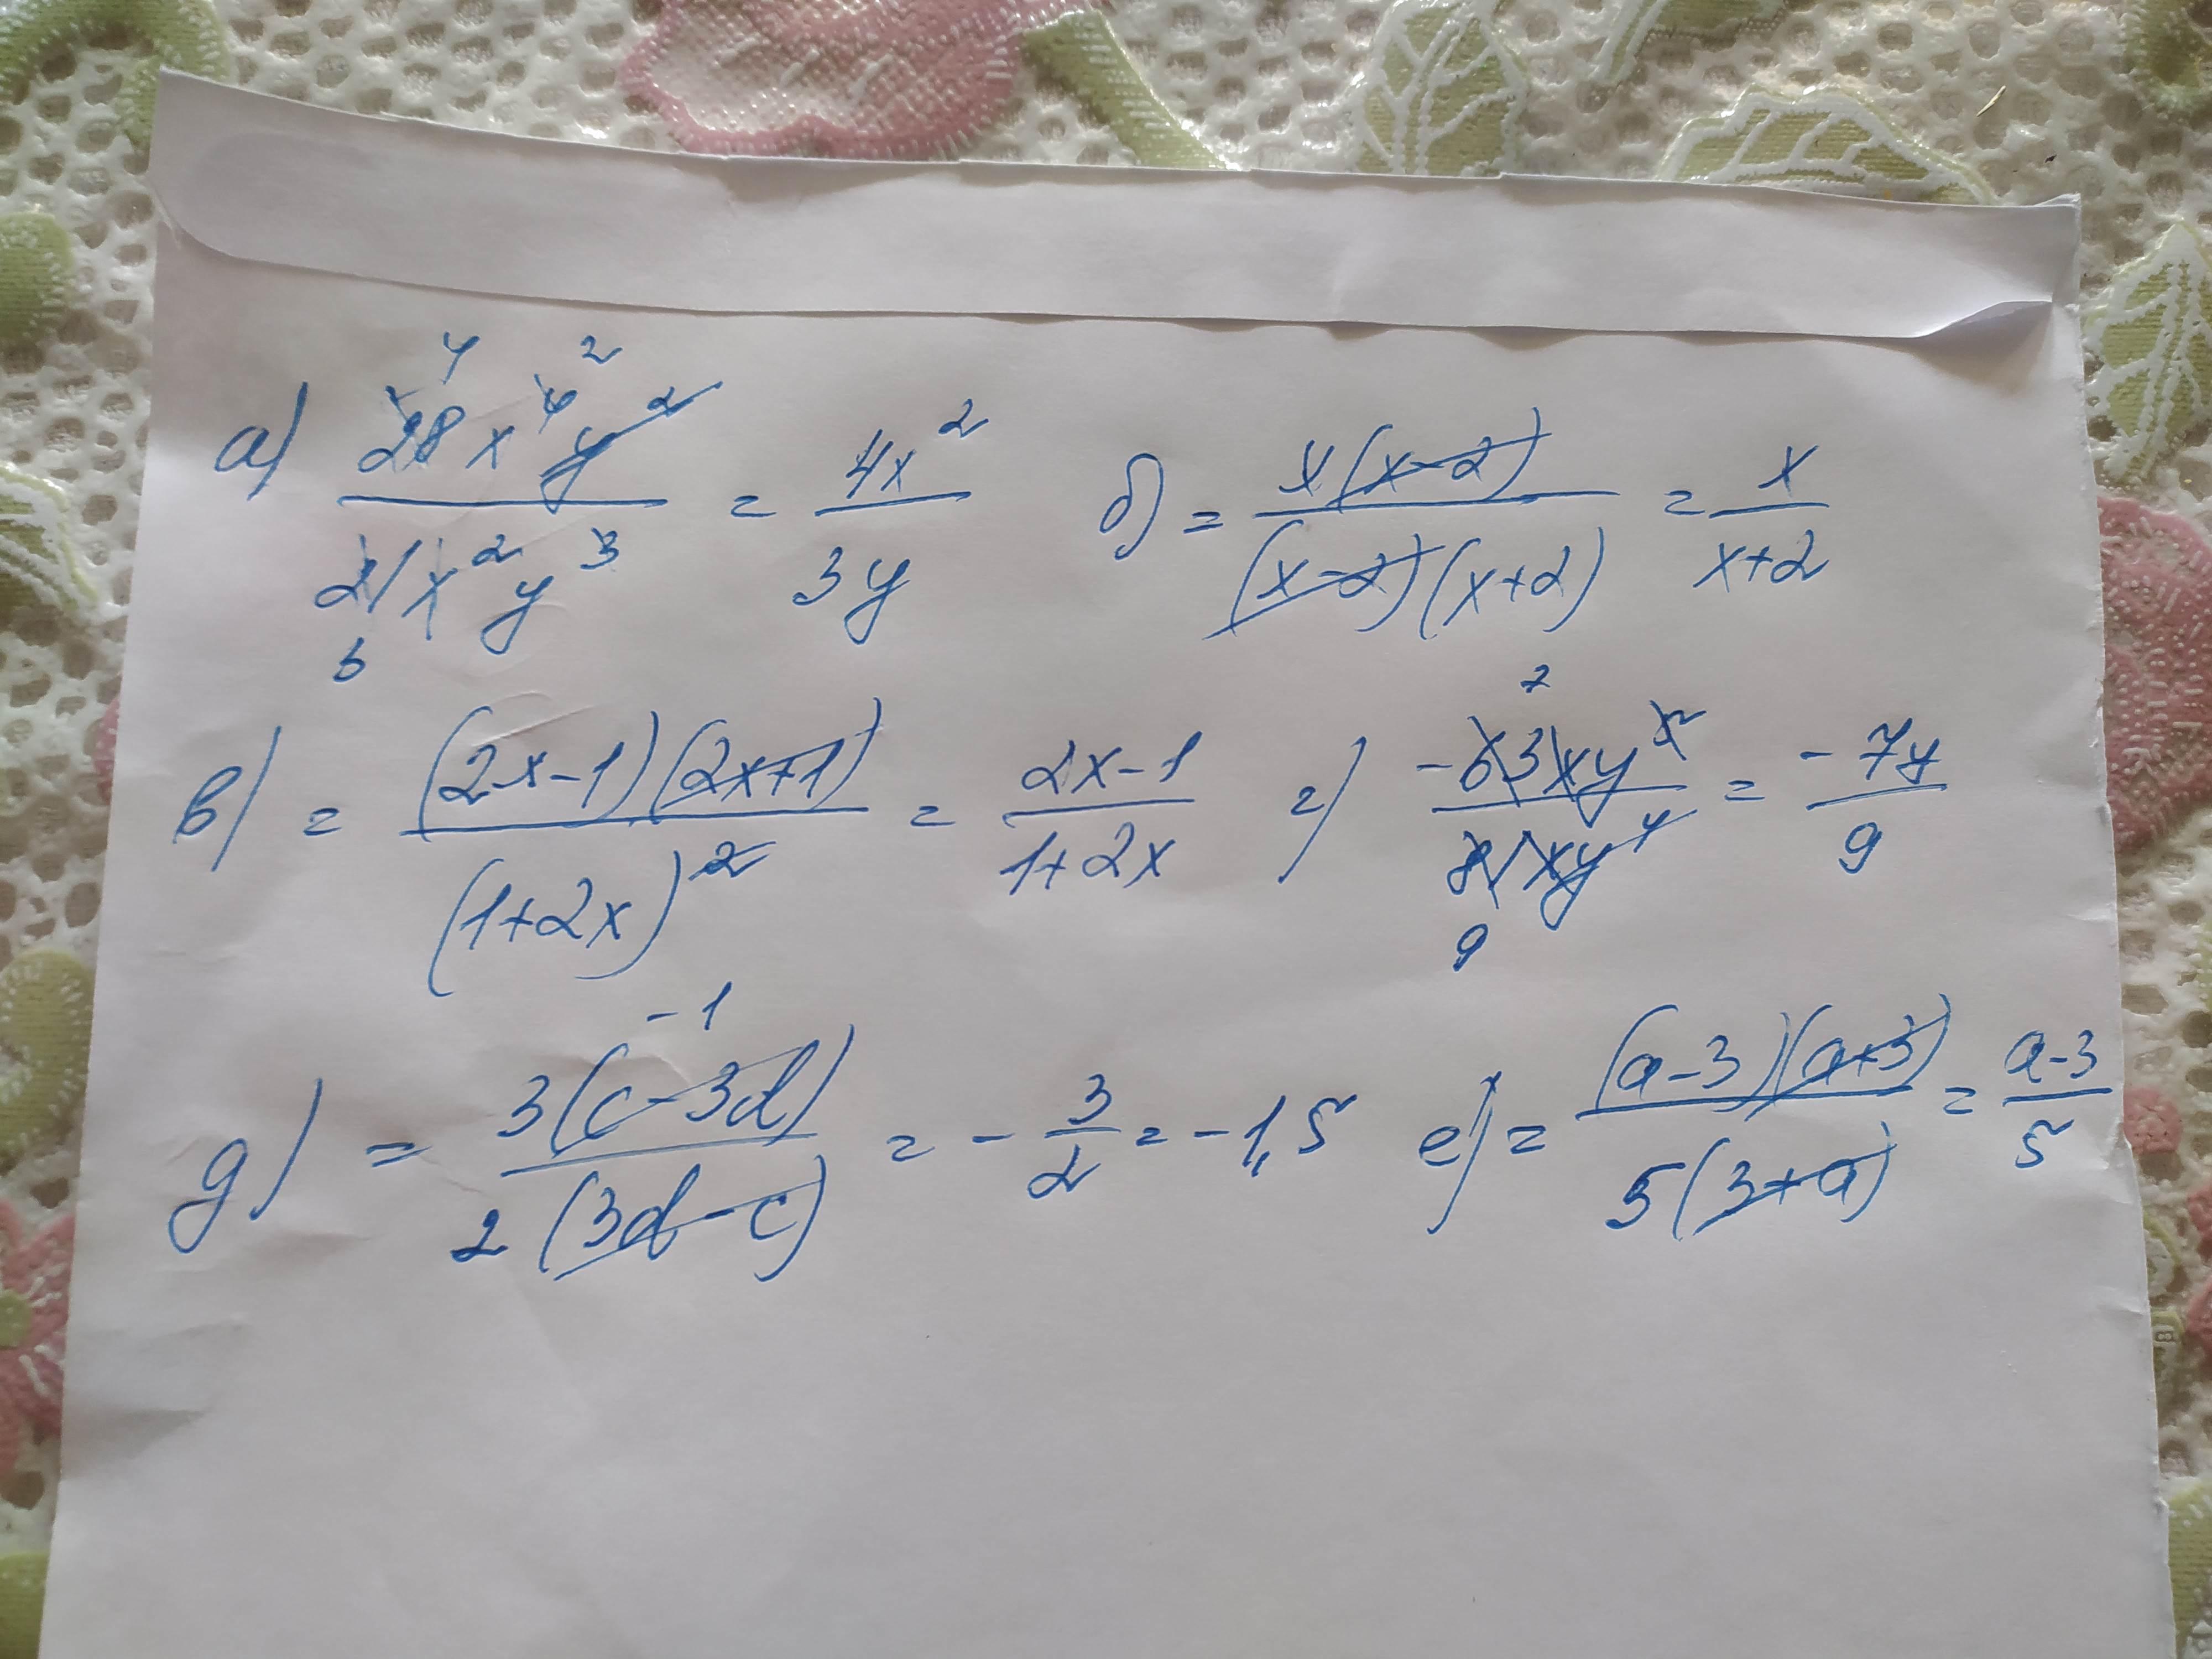 а) 28x⁴y² / 21x²y³ = 4x² / 3y б) = x(x-2) / (x-2)(x+2) = x / x+2
в) = (2x-1)(2x+1) / (1+2x)² = 2x-1 / 1+2x г) -63xy² / 81xy = -7y / 9
д) = 3(c-3d) / 2(3d-c) = -3/2 = -1,5 е) = (a-3)(a+3) / 5(3+a) = a-3 / 5